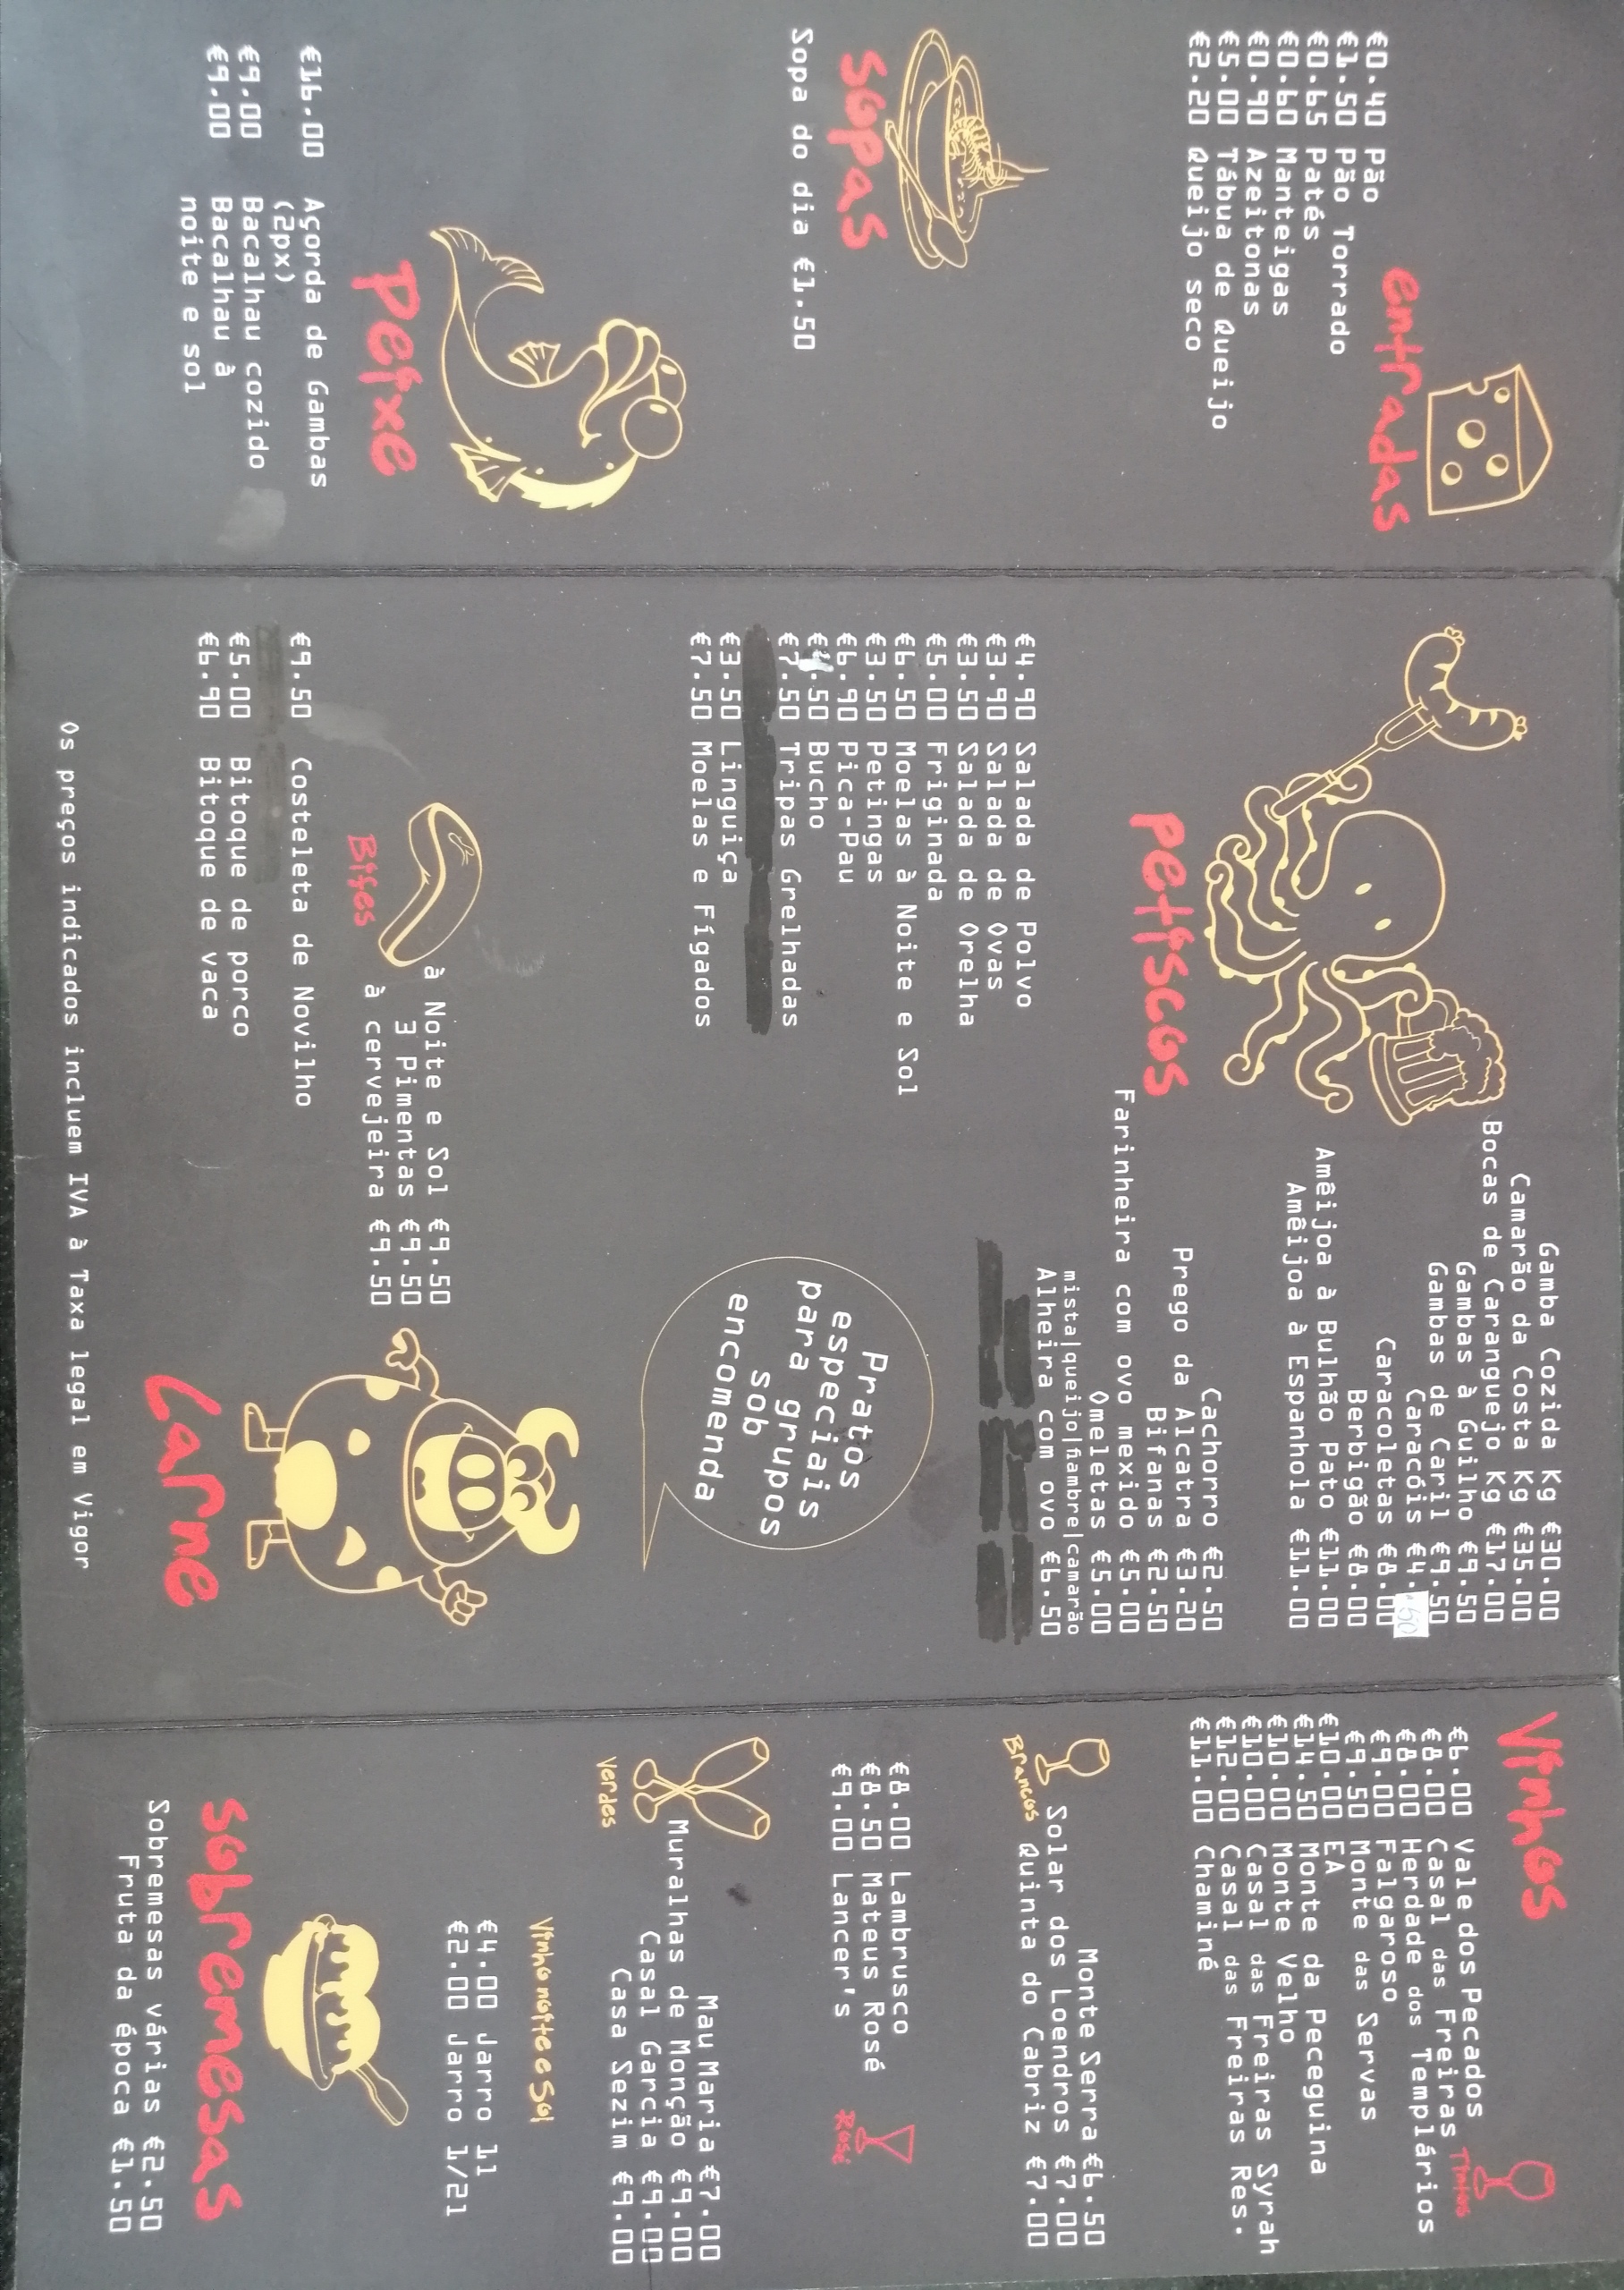 entradas
€0.40 Pão
€1.50 Pão Torrado
€0.65 Patés
€0.60 Manteigas
€0.90 Azeitonas
€5.00 Tábua de Queijo
€2.20 Queijo seco
sopas
Sopa do dia €1.50
Peixe
€16.00 Açorda de Gambas
(2px)
€9.00 Bacalhau cozido
€9.00 Bacalhau à
noite e sol
Petiscos
Gamba Cozida Kg €30.00
Camarão da Costa Kg €35.00
Bocas de Caranguejo Kg €17.00
Gambas à Guilho €9.50
Gambas de Caril €9.50
Caracóis €4.50
Caracoletas €8.00
Berbigão €8.00
Amêijoa à Bulhão Pato €11.00
Amêijoa à Espanhola €11.00
Cachorro €2.50
Prego da Alcatra €3.20
Bifanas €2.50
Farinheira com ovo mexido €5.00
Omeletas €5.00
mista|queijo|fiambre|camarão
Alheira com ovo €6.50
€4.90 Salada de Polvo
€3.90 Salada de Ovas
€3.50 Salada de Orelha
€5.00 Friginada
€6.50 Moelas à Noite e Sol
€3.50 Petingas
€6.90 Pica-Pau
.50 Bucho
€7.50 Tripas Grelhadas
€3.50 Linguiça
€7.50 Moelas e Fígados
Pratos
especiais
para grupos
sob
encomenda
Bifes
à Noite e Sol €9.50
3 Pimentas €9.50
à cervejeira €9.50
€9.50 Costeleta de Novilho
€5.00 Bitoque de porco
€6.90 Bitoque de vaca
Carne
Os preços indicados incluem IVA à Taxa legal em Vigor
Vinhos
Tintos
€6.00 Vale dos Pecados
€8.00 Casal das Freiras
€8.00 Herdade dos Templários
€9.00 Falgaroso
€9.50 Monte das Servas
€10.00 EA
€14.50 Monte da Peceguina
€10.00 Monte Velho
€10.00 Casal das Freiras Syrah
€12.00 Casal das Freiras Res.
€11.00 Chaminé
Brancos
Monte Serra €6.50
Solar dos Loendros €7.00
Quinta do Cabriz €7.00
€8.00 Lambrusco
€8.50 Mateus Rosé
€9.00 Lancer's
Rosé
Verdes
Mau Maria €7.00
Muralhas de Monção €9.00
Casal Garcia €9.00
Casa Sezim €9.00
Vinho noite e Sol
€4.00 Jarro 1l
€2.00 Jarro 1/2l
sobremesas
Sobremesas várias €2.50
Fruta da época €1.50